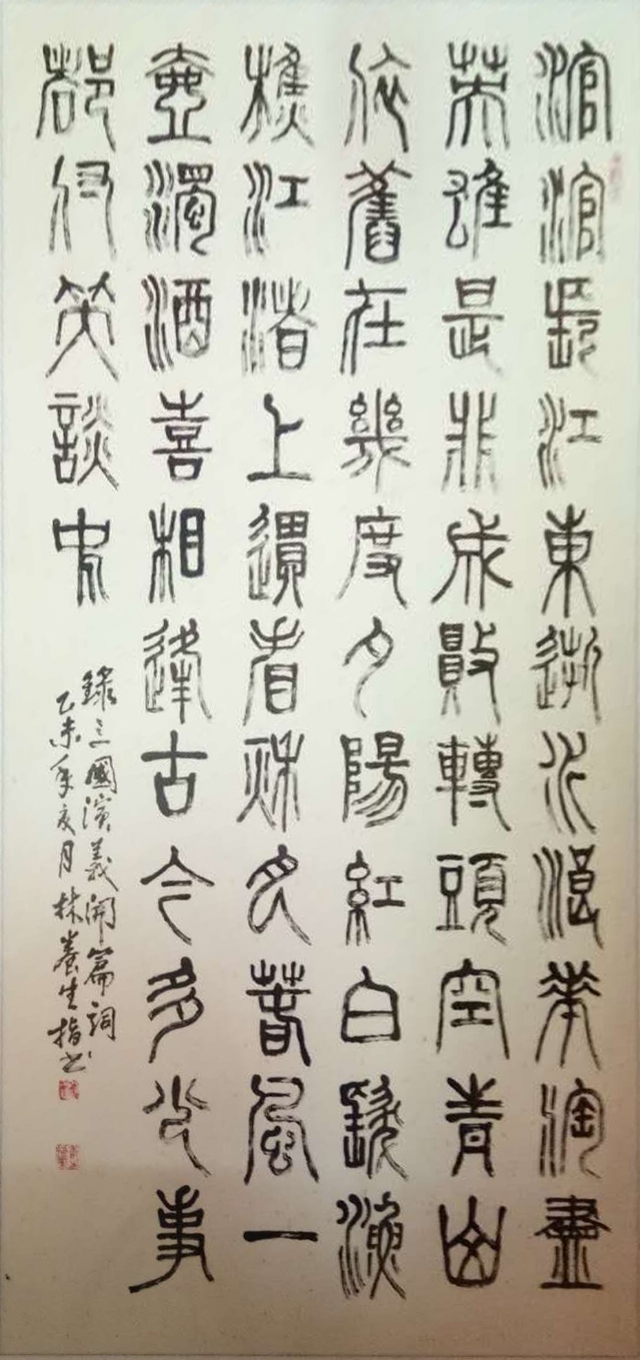 滾滾長江東逝水浪花淘盡
英雄是非成敗轉頭空青山
依舊在幾度夕陽紅白髮漁
樵江渚上還看秋月春風一
壺濁酒喜相逢古今多少事
都付笑談中
錄三國演義開篇詞
乙未年亥月林養生指書